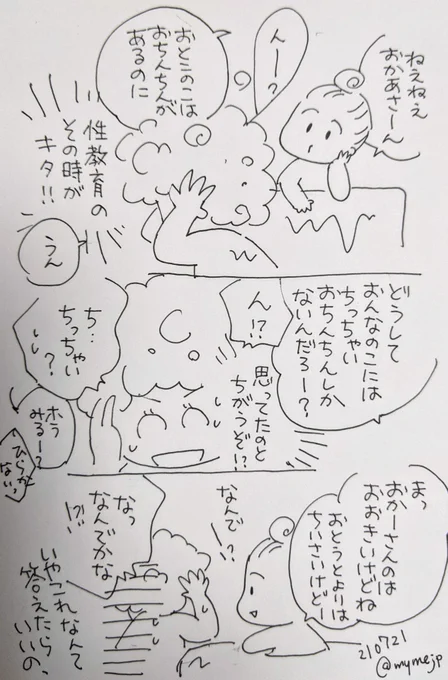 ねえねえ
おかあさーん
んー?
おとこのこは
おちんちんが
あるのに
性教育の
その時が
キタ!!
うん
どうして
おんなのこには
ちっちゃい
おちんちんしか
ないんだろー?
ん!?
思ってたのと
ちがうぞ!?
ち…
ちっちゃい
?
ホラ
みるー?
ひらか
ないっ
まっ
おかーさんのは
おおきいけどね
おとうとよりは
ちいさいけどー
なんでー!?
なっ
なんでかな
!?
いやこれなんて
答えたら
いいの、
210721
@mymejp